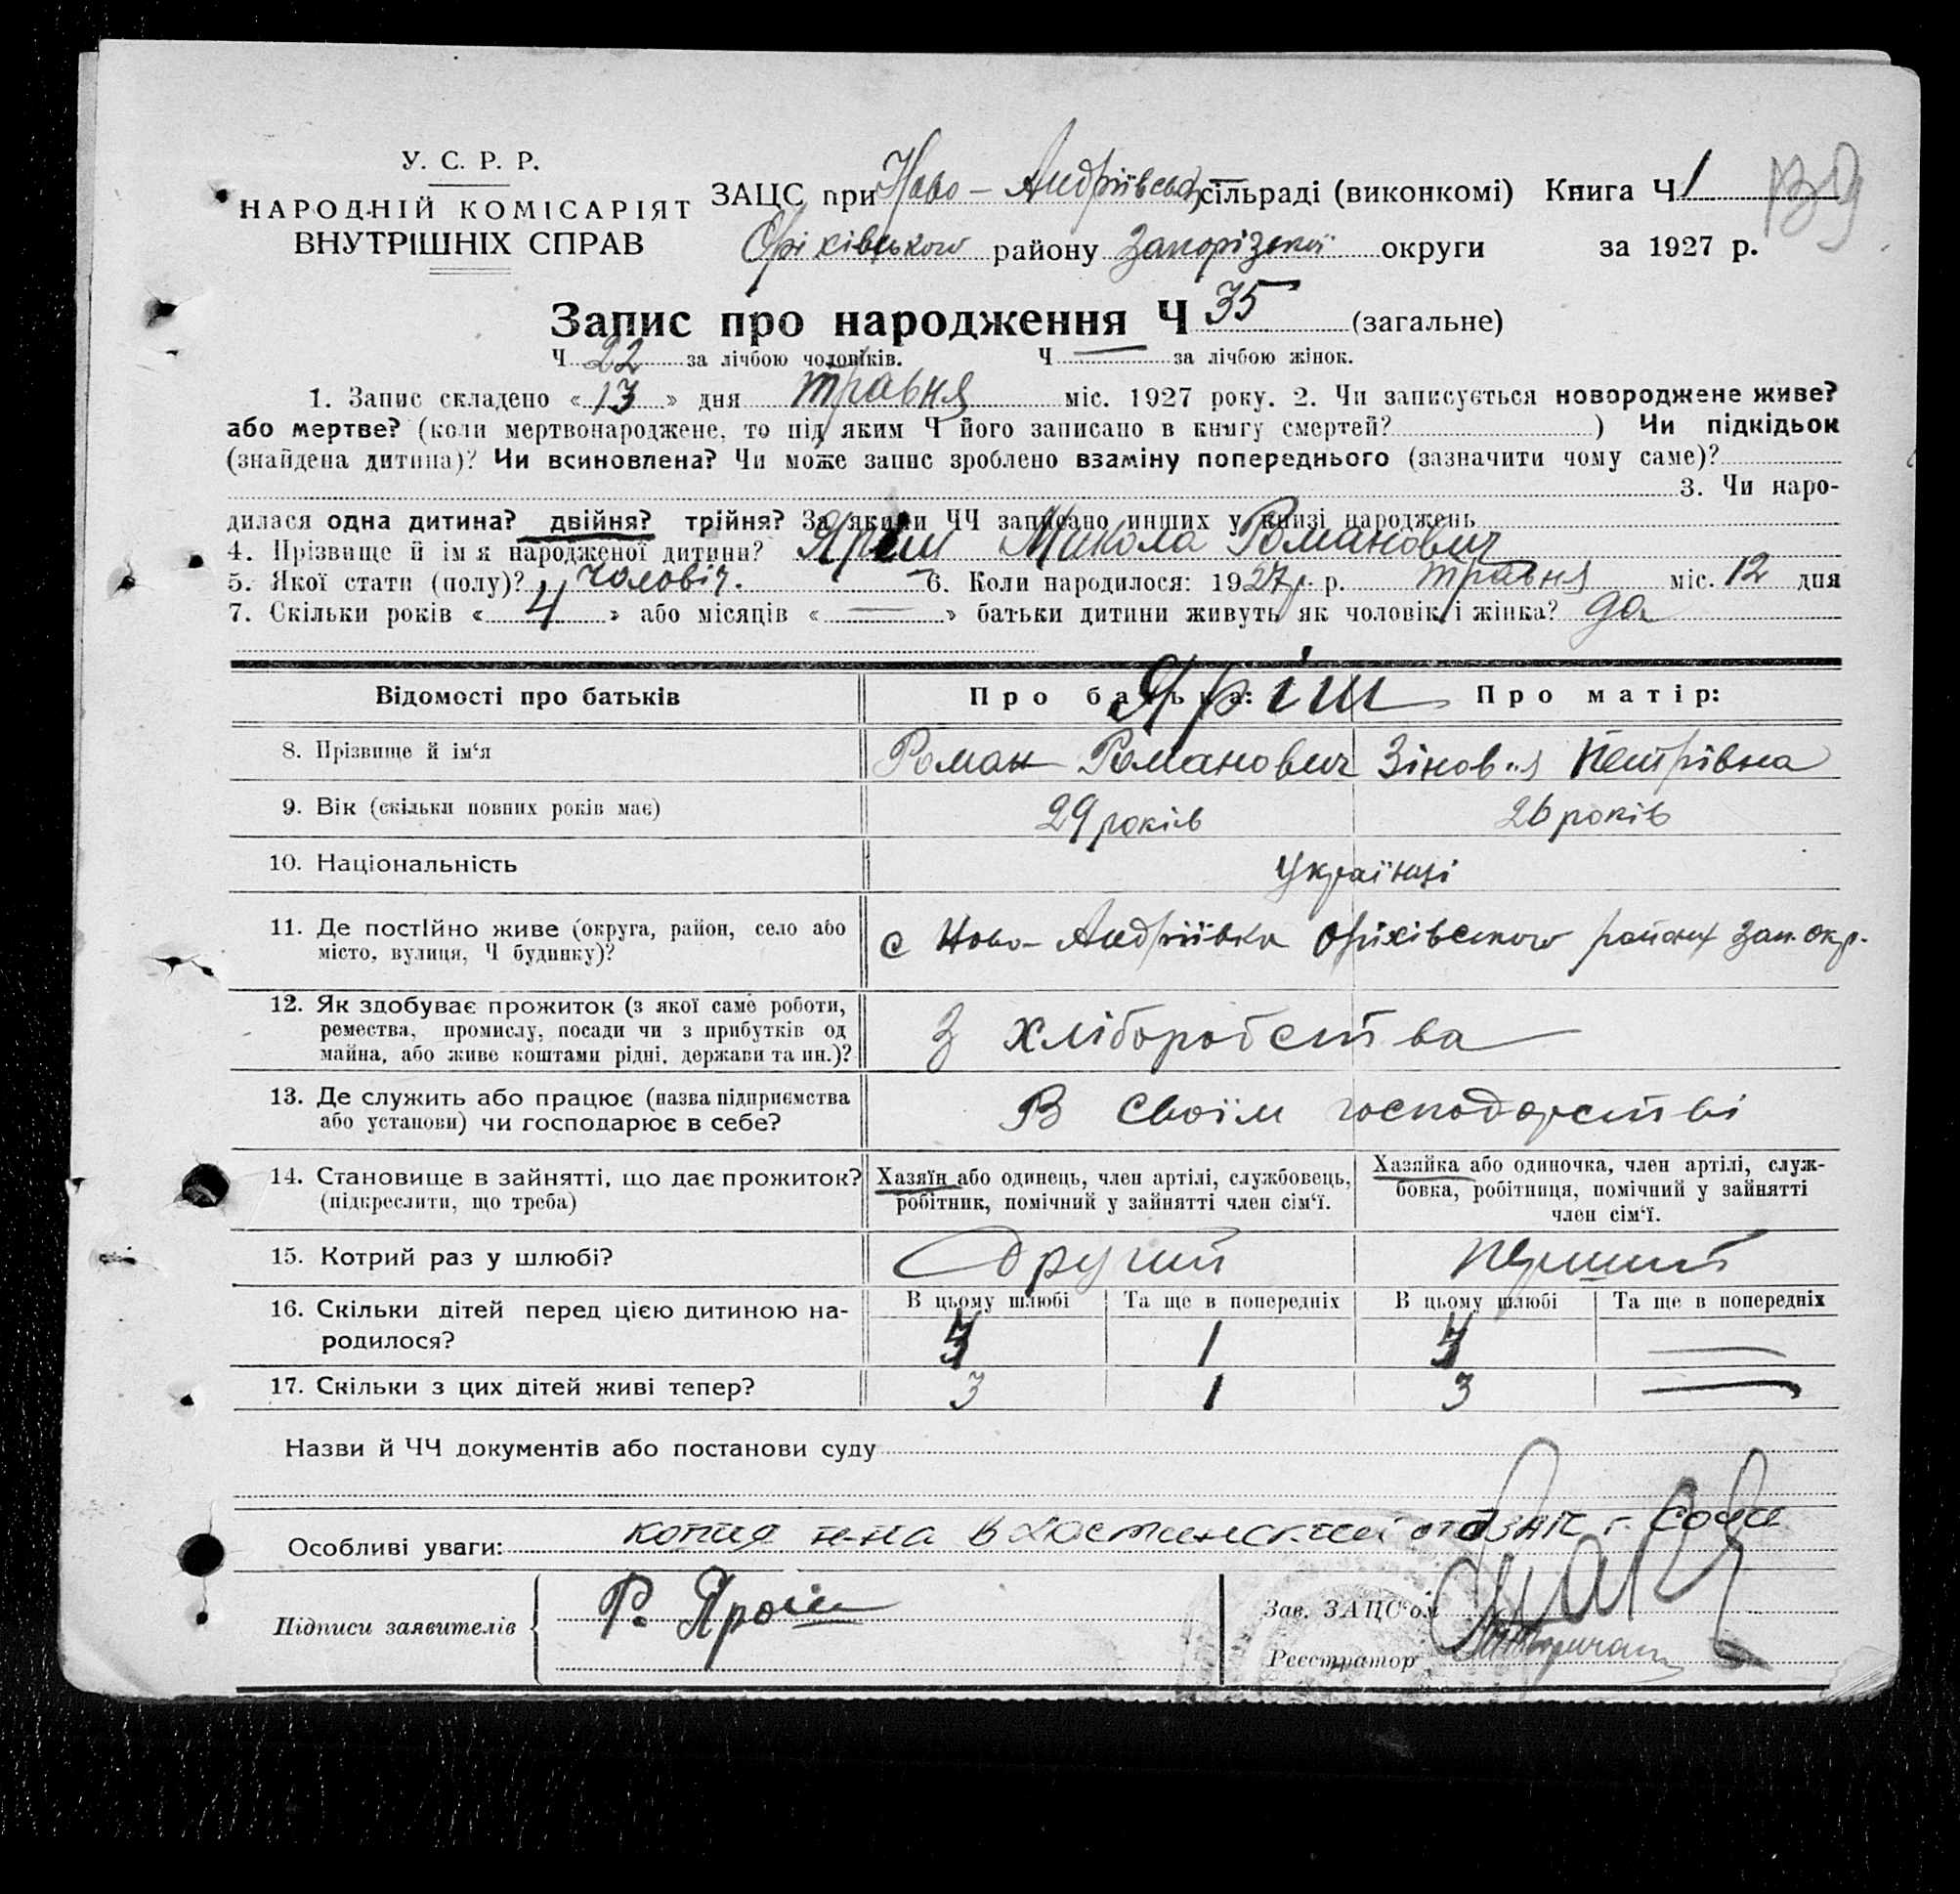 У. С. Р. Р.
НАРОДНІЙ КОМІСАРІЯТ
ВНУТРІШНІХ СПРАВ
ЗАЦС при Ново-Андріївській сільраді (виконкомі) Книга Ч 1
Оріхівського району Запорізької округи за 1927 р.
Запис про народження Ч 35 (загальне)
Ч 22 за лічбою чоловіків. Ч — за лічбою жінок.
1. Запис складено «13» дня травня міс. 1927 року. 2. Чи записується новороджене живе?
або мертве? (коли мертвонароджене, то під яким Ч його записано в книгу смертей? ) Чи підкідьок
(знайдена дитина)? Чи всиновлена? Чи може запис зроблено взаміну попереднього (зазначити чому саме)?
3. Чи наро-
дилася одна дитина? двійня? трійня? За якими ЧЧ записано инших у книзі народжень
4. Прізвище й ім'я народженої дитини? Яріш Микола Романович
5. Якої стати (полу)? чоловіч. 6. Коли народилося: 1927 р. р. травня міс. 12 дня
7. Скільки років «4» або місяців «—» батьки дитини живуть як чоловік і жінка? да
Відомості про батьків Про батька: Про матір:
Яріш
8. Прізвище й ім'я Роман Романович Зінов'я Петрівна
9. Вік (скільки повних років має) 29 років 26 років
10. Національність Українці
11. Де постійно живе (округа, район, село або
місто, вулиця, Ч будинку)? с Ново-Андріївка Оріхівського району Зап. окр.
12. Як здобуває прожиток (з якої саме роботи,
ремества, промислу, посади чи з прибутків од
майна, або живе коштами рідні, держави та ин.)? З хліборобства
13. Де служить або працює (назва підприємства
або установи) чи господарює в себе? В своїм господарстві
14. Становище в зайнятті, що дає прожиток?
(підкреслити, що треба)
Хазяїн або одинець, член артілі, службовець,
робітник, помічний у зайнятті член сім'ї.
Хазяйка або одиночка, член артілі, служ-
бовка, робітниця, помічний у зайнятті
член сім'ї.
15. Котрий раз у шлюбі? Другий Перший
16. Скільки дітей перед цією дитиною на-
родилося?
В цьому шлюбі Та ще в попередніх В цьому шлюбі Та ще в попередніх
1 —
17. Скільки з цих дітей живі тепер? 3 1 3 —
Назви й ЧЧ документів або постанови суду
Особливі уваги: копия в г. Сочи
Підписи заявителів Р. Ярош
Зав. ЗАЦС'ом
Реєстратор